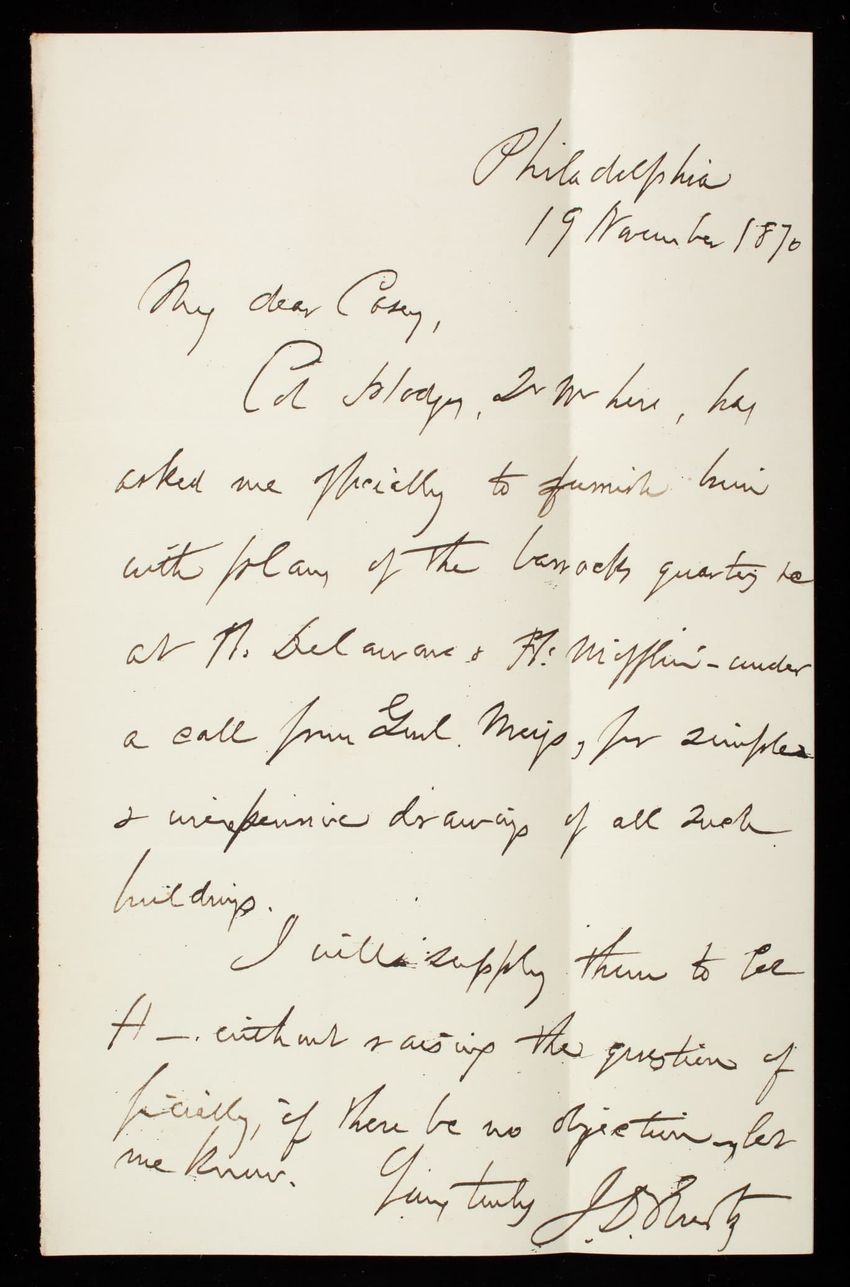 Philadelphia
19 November 1870
My dear Casey,
Col Hodges, Qr Mr here, has
asked me officially to furnish him
with plans of the barracks quarters &c
at Ft. Delaware & Ft. Mifflin - under
a call from Genl. Meigs, for simple
& inexpensive drawings of all such
buildings.
I will supply them to Col
H -. without raising the question of
ficially, if there be no objection - let
me know.
Yours truly
J. D. Kurtz